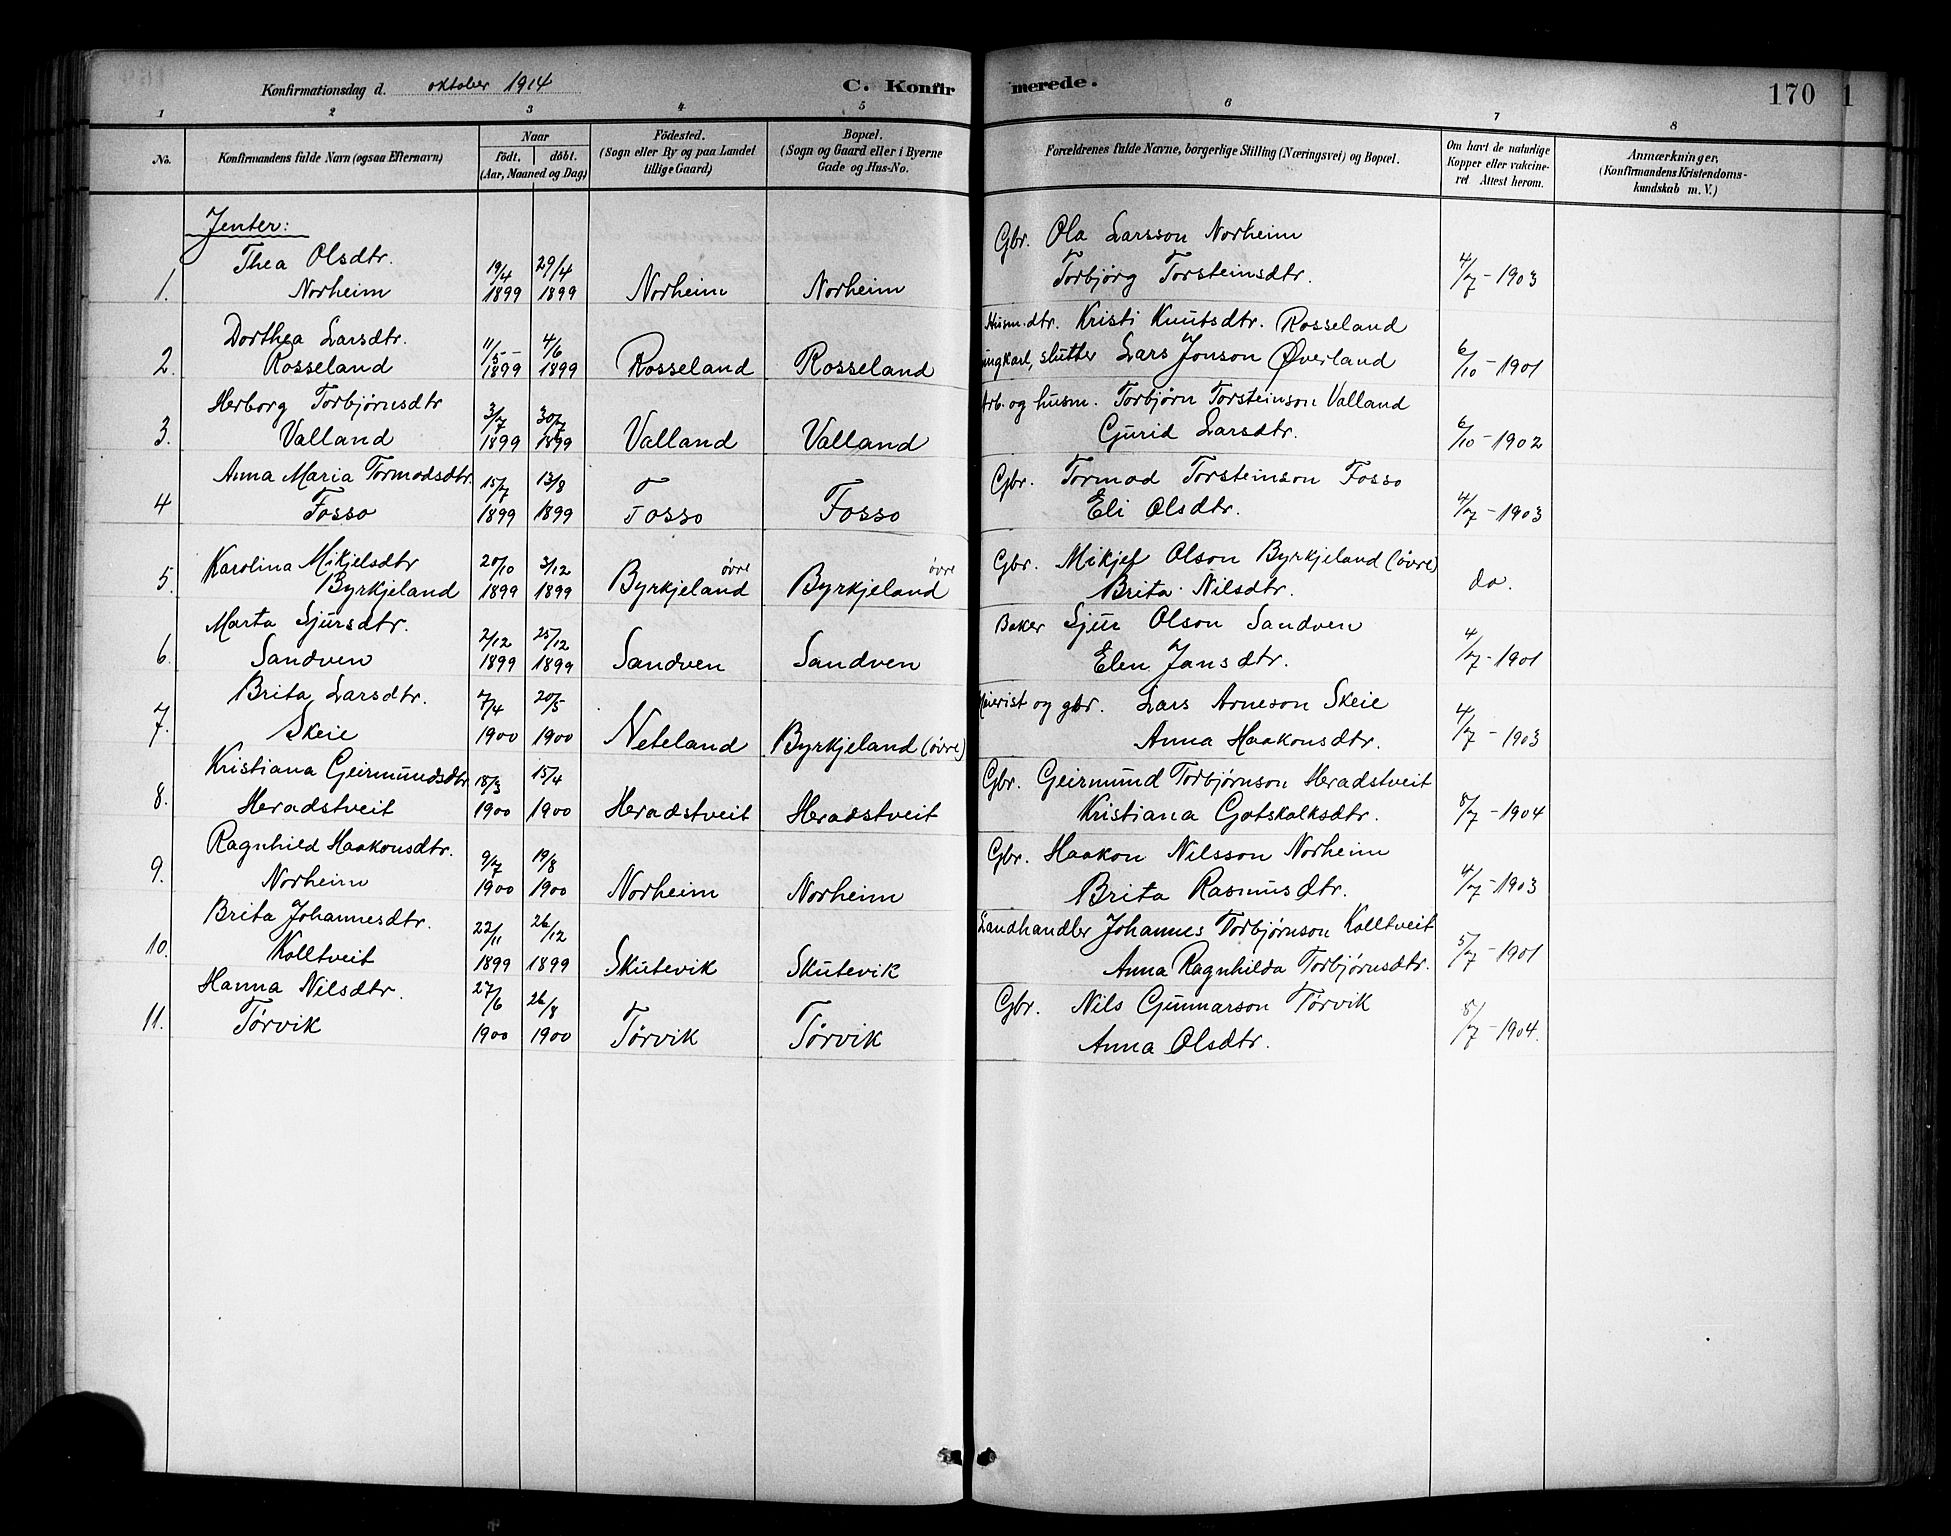 Konfirmationsdag d. oktober 1914
C. Konfirmerede.
170 1
1 2 3 4 5 6 7 8
No.
Konfirmandens fulde Navn (ogsaa Efternavn)
Naar
födt. döbt.
(Aar, Maaned og Dag)
Födested.
(Sogn eller By og paa Landet
tillige Gaard)
Bopæl.
(Sogn og Gaard eller i Byerne
Gade og Hus-No.
Forældrenes fulde Navne, borgerlige Stilling (Næringsvei) og Bopæl.
Om havt de naturlige
Kopper eller vakcine-
ret Attest herom.
Anmærkninger,
(Konfirmandens Kristendoms-
kundskab m. V.)
Jenter:
Thea Olsdtr. 19/4 29/4 Gbr. Ola Larsson Norheim
1. Norheim 1899 1899 Norheim Norheim Torbjørg Torsteinsdtr. 4/7 - 1903
Dorthea Larsdtr. 11/5 - 4/6 Husm.dtr. Kristi Knutsdtr. Rosseland
2. Rosseland 1899 1899 Rosseland Rosseland ungkarl, slutter Lars Jonson Øverland 6/10 - 1901
Herborg Torbjørnsdtr 3/7 30/7 Arb. og husm. Torbjørn Torsteinson Valland
3. Valland 1899 1899 Valland Valland Gurid Larsdtr. 6/10 - 1902
Anna Maria Tormodsdtr. 15/7 13/8 Gbr. Tormod Torsteinson Fosso
4 Fosso 1899 1899 Fosso Fosso Eli Olsdtr. 4/7 - 1903
Karolina Mikjelsdtr 20/10 3/12 øvre øvre Gbr. Mikjel Olson Byrkjeland (øvre)
5. Byrkjeland 1899 1899 Byrkjeland Byrkjeland Brita Nilsdtr. do.
Marta Sjursdtr. 2/12 25/12 Baker Sjur Olson Sandven
6. Sandven 1899 1899 Sandven Sandven Elen Jansdtr. 4/7 - 1901
Brita Larsdtr. 7/4 20/5 Meierist og gbr. Lars Arneson Skeie
7. Skeie 1900 1900 Neteland Byrkjeland (øvre) Anna Haakonsdtr. 4/7 - 1903
Kristiana Geirmundsdtr 18/3 15/4 Gbr. Geirmund Torbjørnson Heradstveit
8. Heradstveit 1900 1900 Heradstveit Heradstveit Kristiana Gotskalksdtr. 8/7 - 1904
Ragnhild Haakonsdtr. 9/7 19/8 Gbr. Haakon Nilsson Norheim
9. Norheim 1900 1900 Norheim Norheim Brita Rasmusdtr. 4/7 - 1903
Brita Johannesdtr. 22/11 26/12 Landhandler Johannes Torbjørnson Kolltveit
10. Kolltveit 1899 1899 Skutevik Skutevik Anna Ragnhilda Torbjørnsdtr. 5/7 - 1901
Hanna Nilsdtr. 27/6 26/8 Gbr. Nils Gunnarson Tørvik
11. Tørvik 1900 1900 Tørvik Tørvik Anna Olsdtr. 8/7 - 1904.